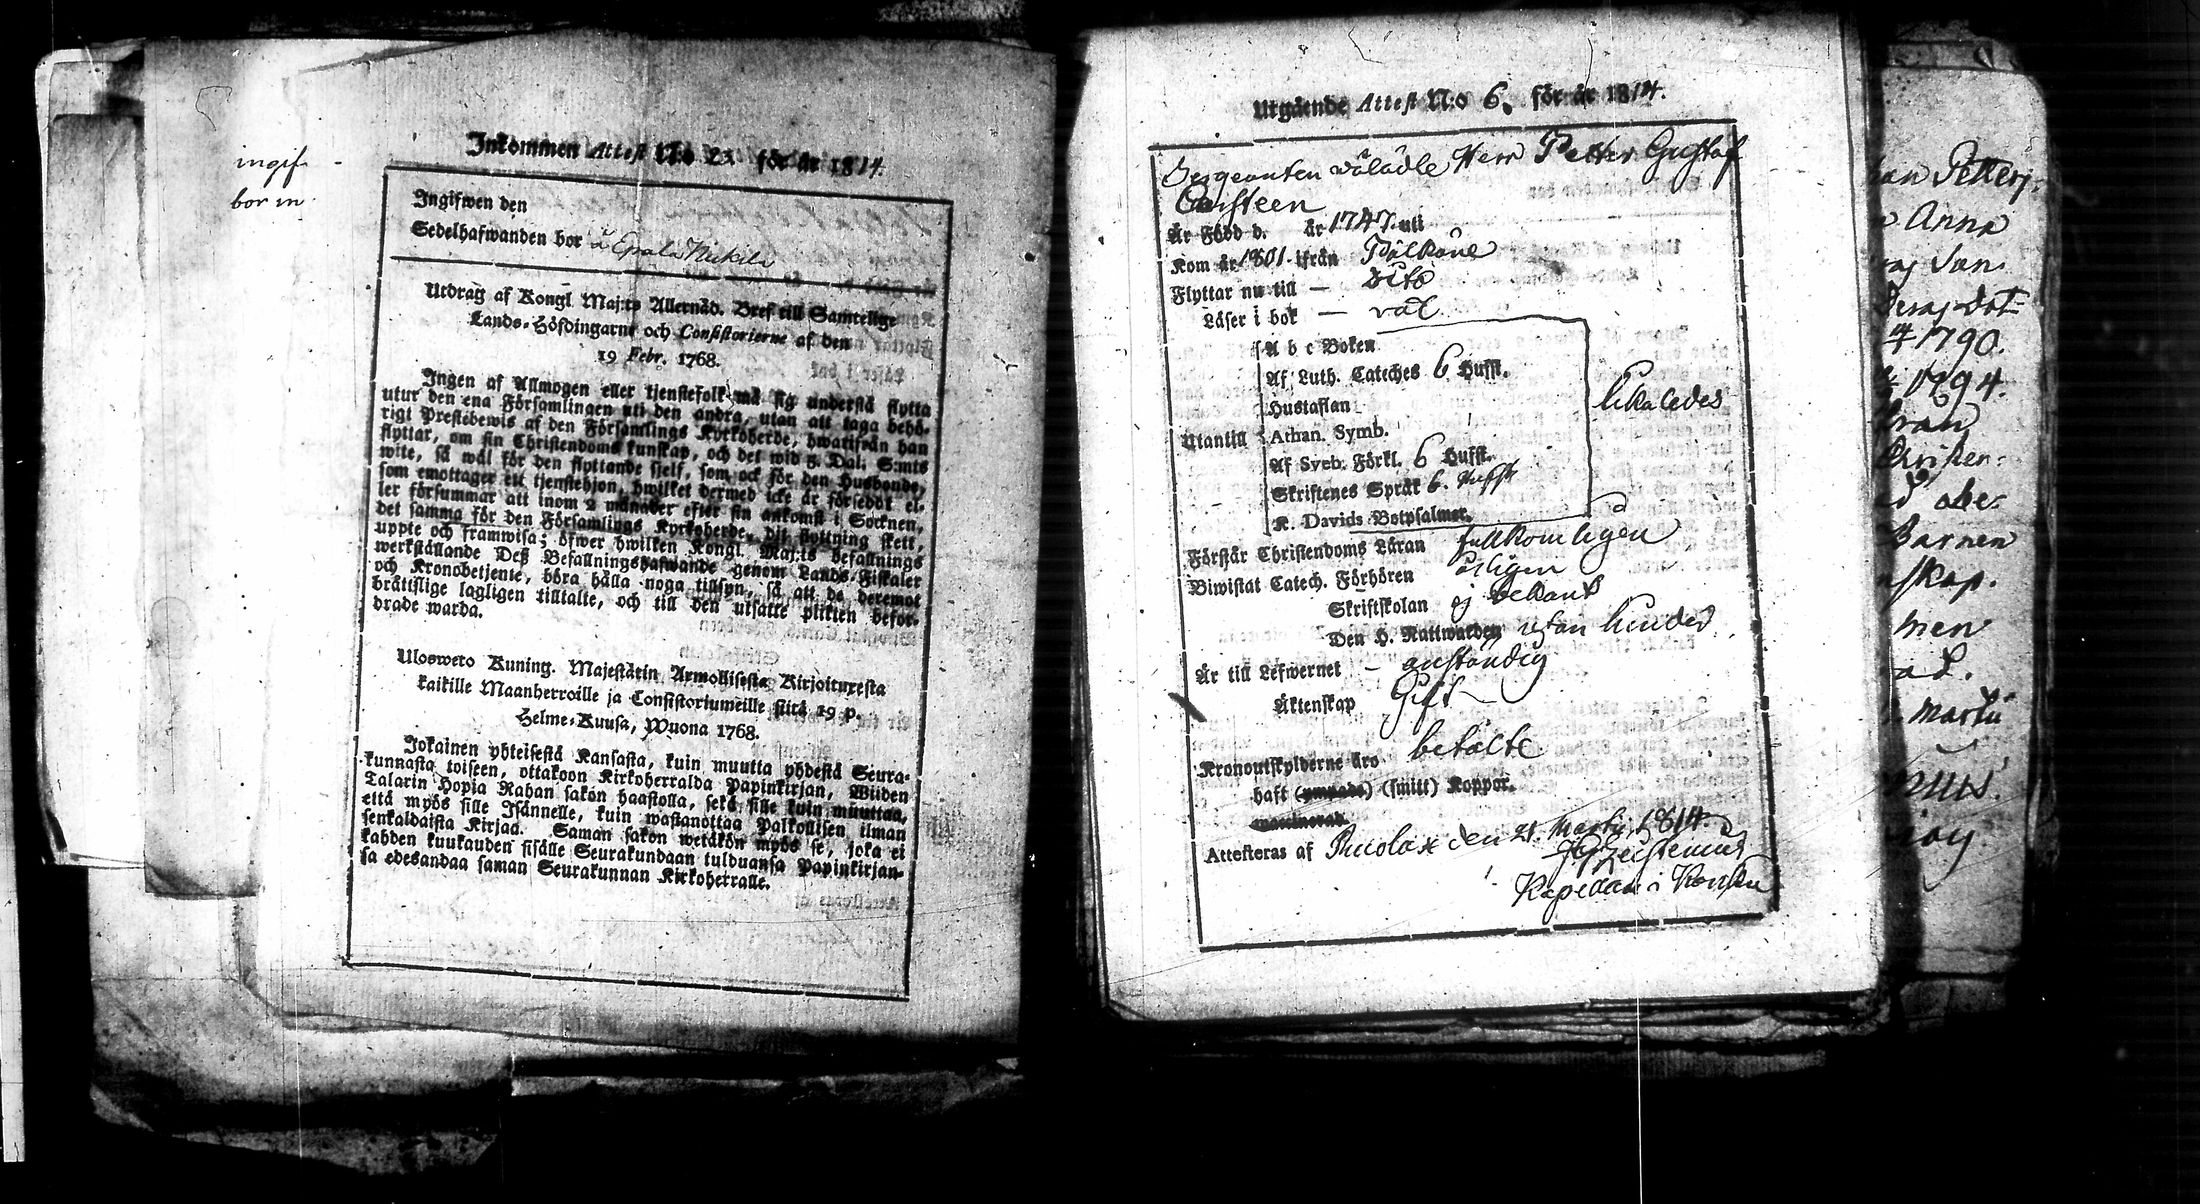 ingif
bor in
Inkommen Attest N:o 23 för år 1814.
Ingifwen den
Sedelhafwanden bor å Epala Nickila
Utdrag af Kongl. Maj:ts Allernåd. Bref till Samtelige
Lands-Höfdingarne och Consistorierne af den
19 Febr. 1768.
Ingen af Allmogen eller tjenstefolk må sig understå flytta
utur den ena Församlingen uti den andra, utan att taga behö-
rigt Prestebewis af den Församlings Kyrkoherde, hwarifrån han
flyttar, om sin Christendoms kunskap, och det wid 5. Dal. S:mts
wite, så wäl för den flyttande sjelf, som ock för den Husbonde,
som emottager ett tjenstehjon, hwilket dermed icke är försedot el-
ler försummar att inom 2 månader efter sin ankomst i Socknen,
det samma för den Församlings Kyrkoherde, dit flyttning skett,
uppte och framwisa; öfwer hwilken Kongl. Maj:ts befallnings
werkställande Deß Befallningshafwande genom Lands-Fiskaler
och Kronobetjente, böra hålla noga tillsyn, så att de deremot
bråttslige lagligen tilltalte, och till den utsatte plikten befor-
drade warda.
Uloswetο Kuning. Majestätin Armollisesta Kirjoituxesta
kaikille Maanherroille ja Consistoriumeille siitä 19 p.
Helme-Kuusa, Wuona 1768.
Jokainen yhteisestä Kansasta, kuin muutta yhdestä Seura-
kunnasta toiseen, ottakoon Kirkoherralda Papinkirjan, Wiiden
Talarin Hopia Rahan sakon haastolla, sekä sille kuin muuttaa,
että myös sille Isännelle, kuin wastanottaa Palkollisen ilman
senkaldaista Kirjaa. Saman sakon wetäkön myös se, joka ei
kahden kuukauden sisälle Seurakundaan tulduansa Papinkirjan-
sa edesandaa saman Seurakunnan Kirkoherralle.
Utgående Attest N:o 6. för år 1814.
Sergeanten wälädle Herr Petter Gustaf
Är Född d. år 1747 uti
Kom år 1801 ifrån Pälkäne
Flyttar nu till — dito
Läser i bok — väl
A b c Boken
Af Luth. Cateches 6 Hufst.
Hustaflan
likaledes
Utantill
Athan. Symb.
Af Sveb. Förkl. 6 Hufst.
Skriftenes Språk 6. Hufst
K. Davids Botpsalmer.
Förstår Christendoms Läran fullkomligen
Biwistat Catech. Förhören årligen
Skriftskolan ej bekant
Den H. Nattwarden utan hinder
Är till Lefwernet — anständig
Äktenskap Gift
Kronoutskylderne äro betalte
haft (smitt) Koppor.
Attesteras af Ruolax den 21. Martii 1814.
Kapellan i
Petters
Anna
Son
Dot
1790.
1794.
ifrån
Christen:
Barnen
skap.
men
Martii